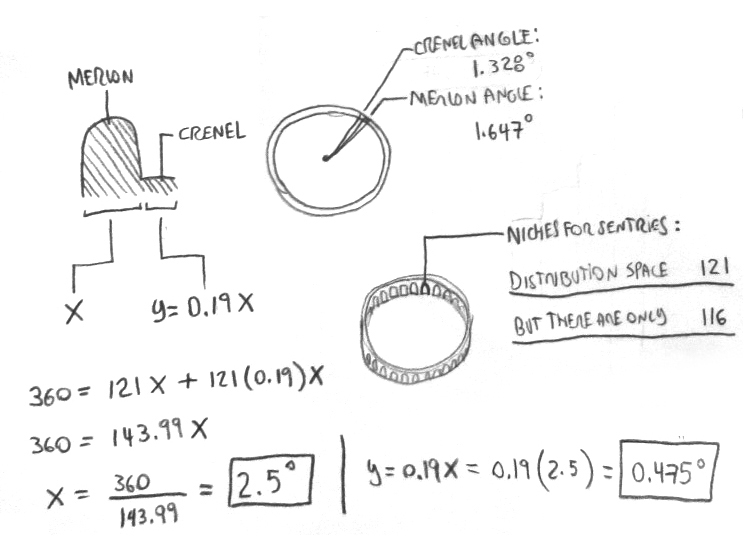 MERLON
CRENEL
X
y = 0.19 X
CRENEL ANGLE:
1.328°
MERLON ANGLE:
1.647°
NICHES FOR SENTRIES:
DISTRIBUTION SPACE 121
BUT THERE ARE ONLY 116
360 = 121 X + 121 (0.19) X
360 = 143.99 X
X = 360 / 143.99 = 2.5°
y = 0.19X = 0.19 (2.5) = 0.475°